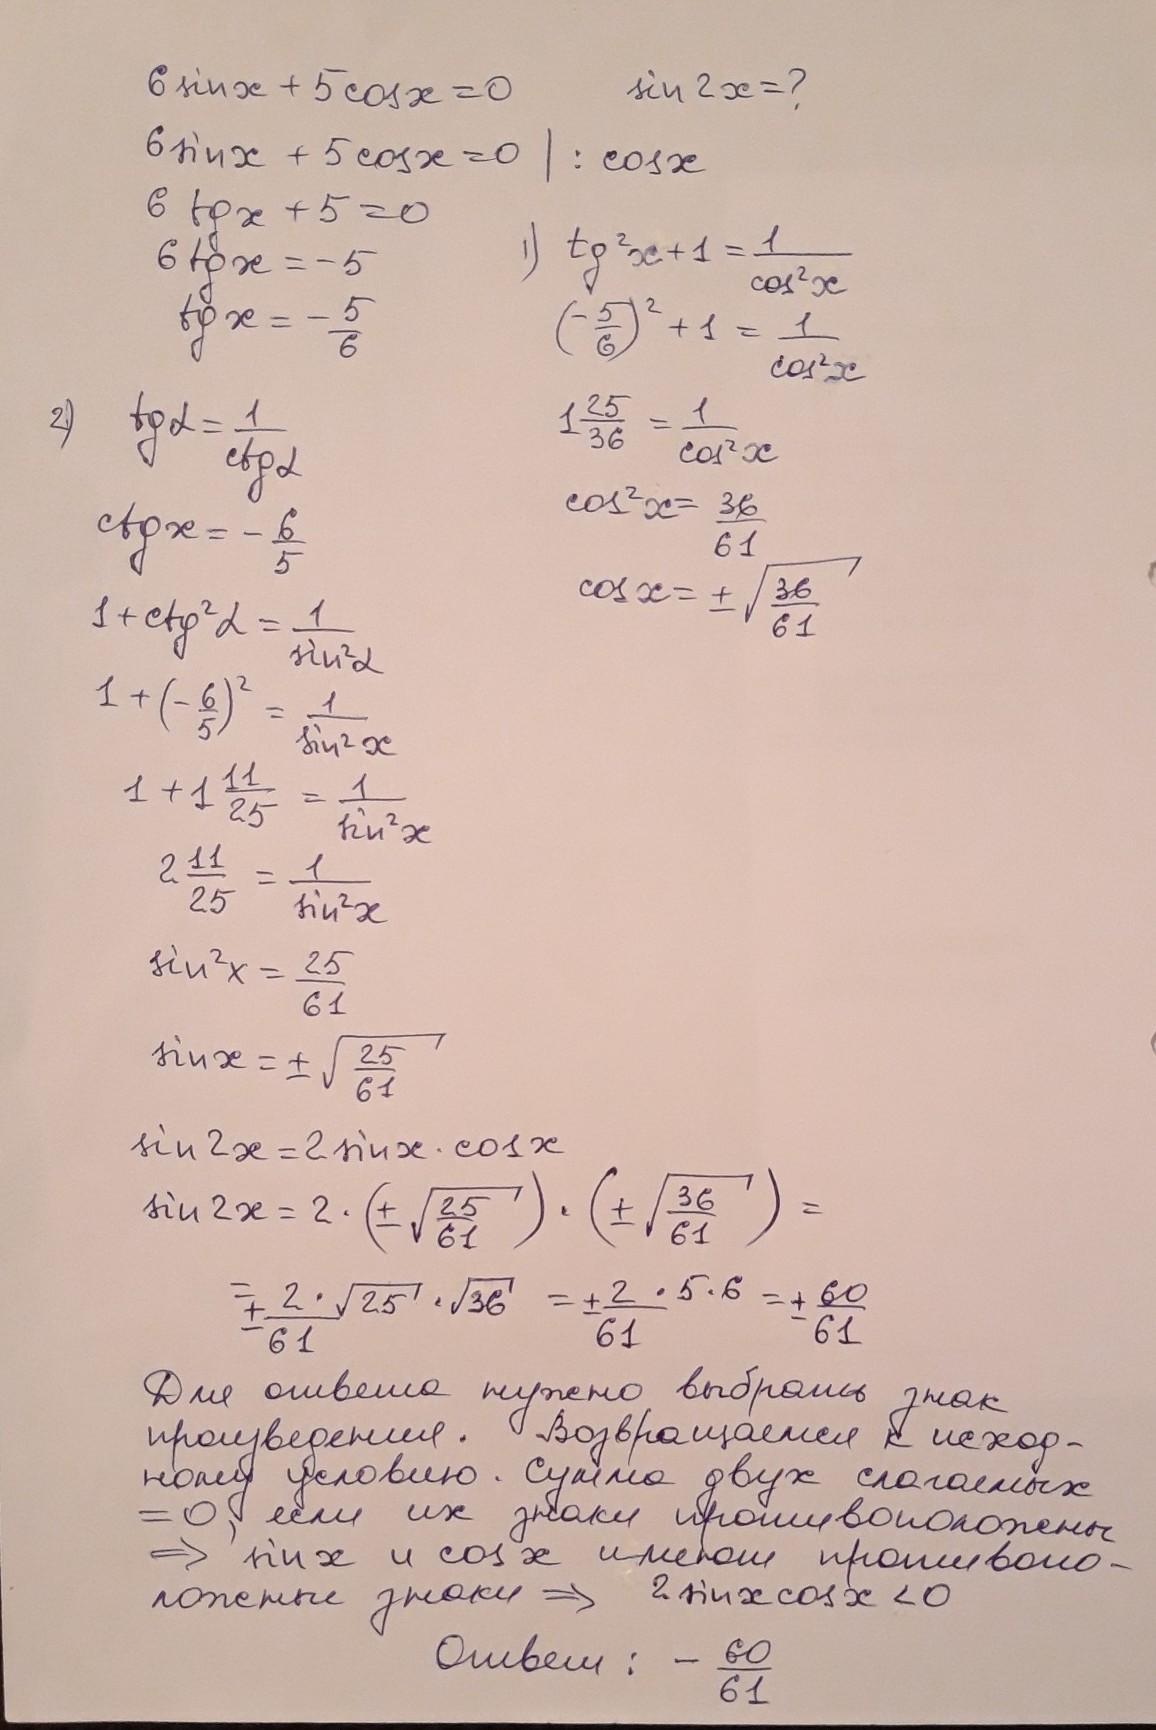 6sinx + 5cosx = 0 sin2x = ?
6sinx + 5cosx = 0 | : cosx
6 tgx + 5 = 0
6tgx = -5
tgx = - 5/6
1) tg²x + 1 = 1/cos²x
(- 5/6)² + 1 = 1/cos²x
1 25/36 = 1/cos²x
cos²x = 36/61
cosx = ± √(36/61)
2) tgα = 1/ctgα
ctgx = - 6/5
1 + ctg²α = 1/sin²α
1 + (- 6/5)² = 1/sin²x
1 + 1 11/25 = 1/sin²x
2 11/25 = 1/sin²x
sin²x = 25/61
sinx = ± √(25/61)
sin2x = 2sinx · cosx
sin2x = 2 · (± √(25/61)) · (± √(36/61)) =
= ± 2 · √25 · √36 / 61 = ± 2 · 5 · 6 / 61 = ± 60/61
Для ответа нужно выбрать знак
произведения. Возвращаемся к исход-
ному условию. Сумма двух слагаемых
= 0, если их знаки противоположены
=> sinx и cosx имеют противопо-
ложные знаки => 2sinxcosx < 0
Ответ: - 60/61